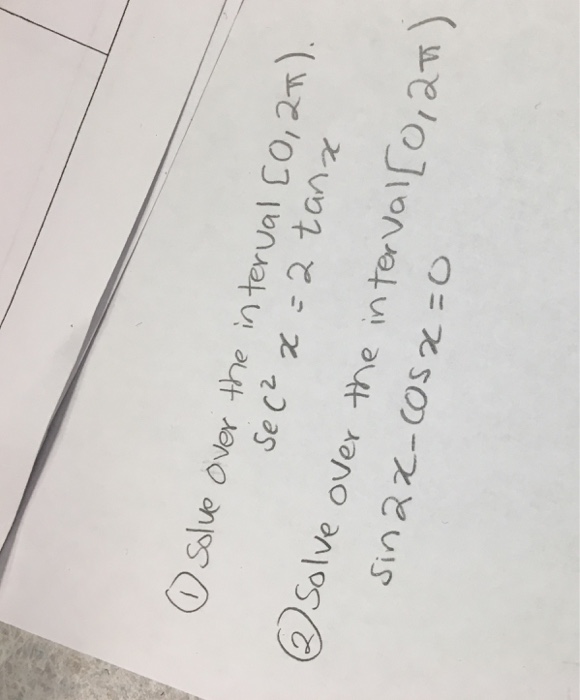 ① Solve over the interval [0,2π).
sec² x = 2 tan x
② Solve over the interval [0,2π)
sin2x-cosx=0